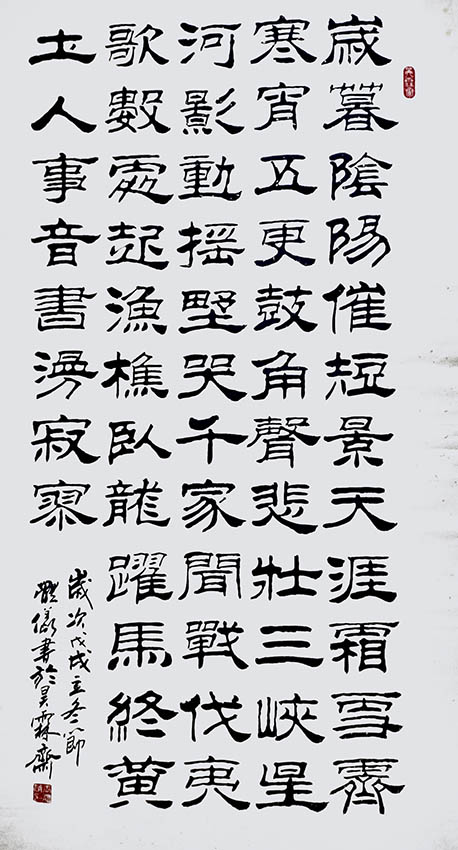 歲暮陰陽催短景天涯霜雪霽
寒宵五更鼓角聲悲壯三峽星
河影動搖野哭千家聞戰伐夷
歌數處起漁樵臥龍躍馬終黃
土人事音書漫寂寥
歲次戊戌立冬節
儀書於昊霖齋